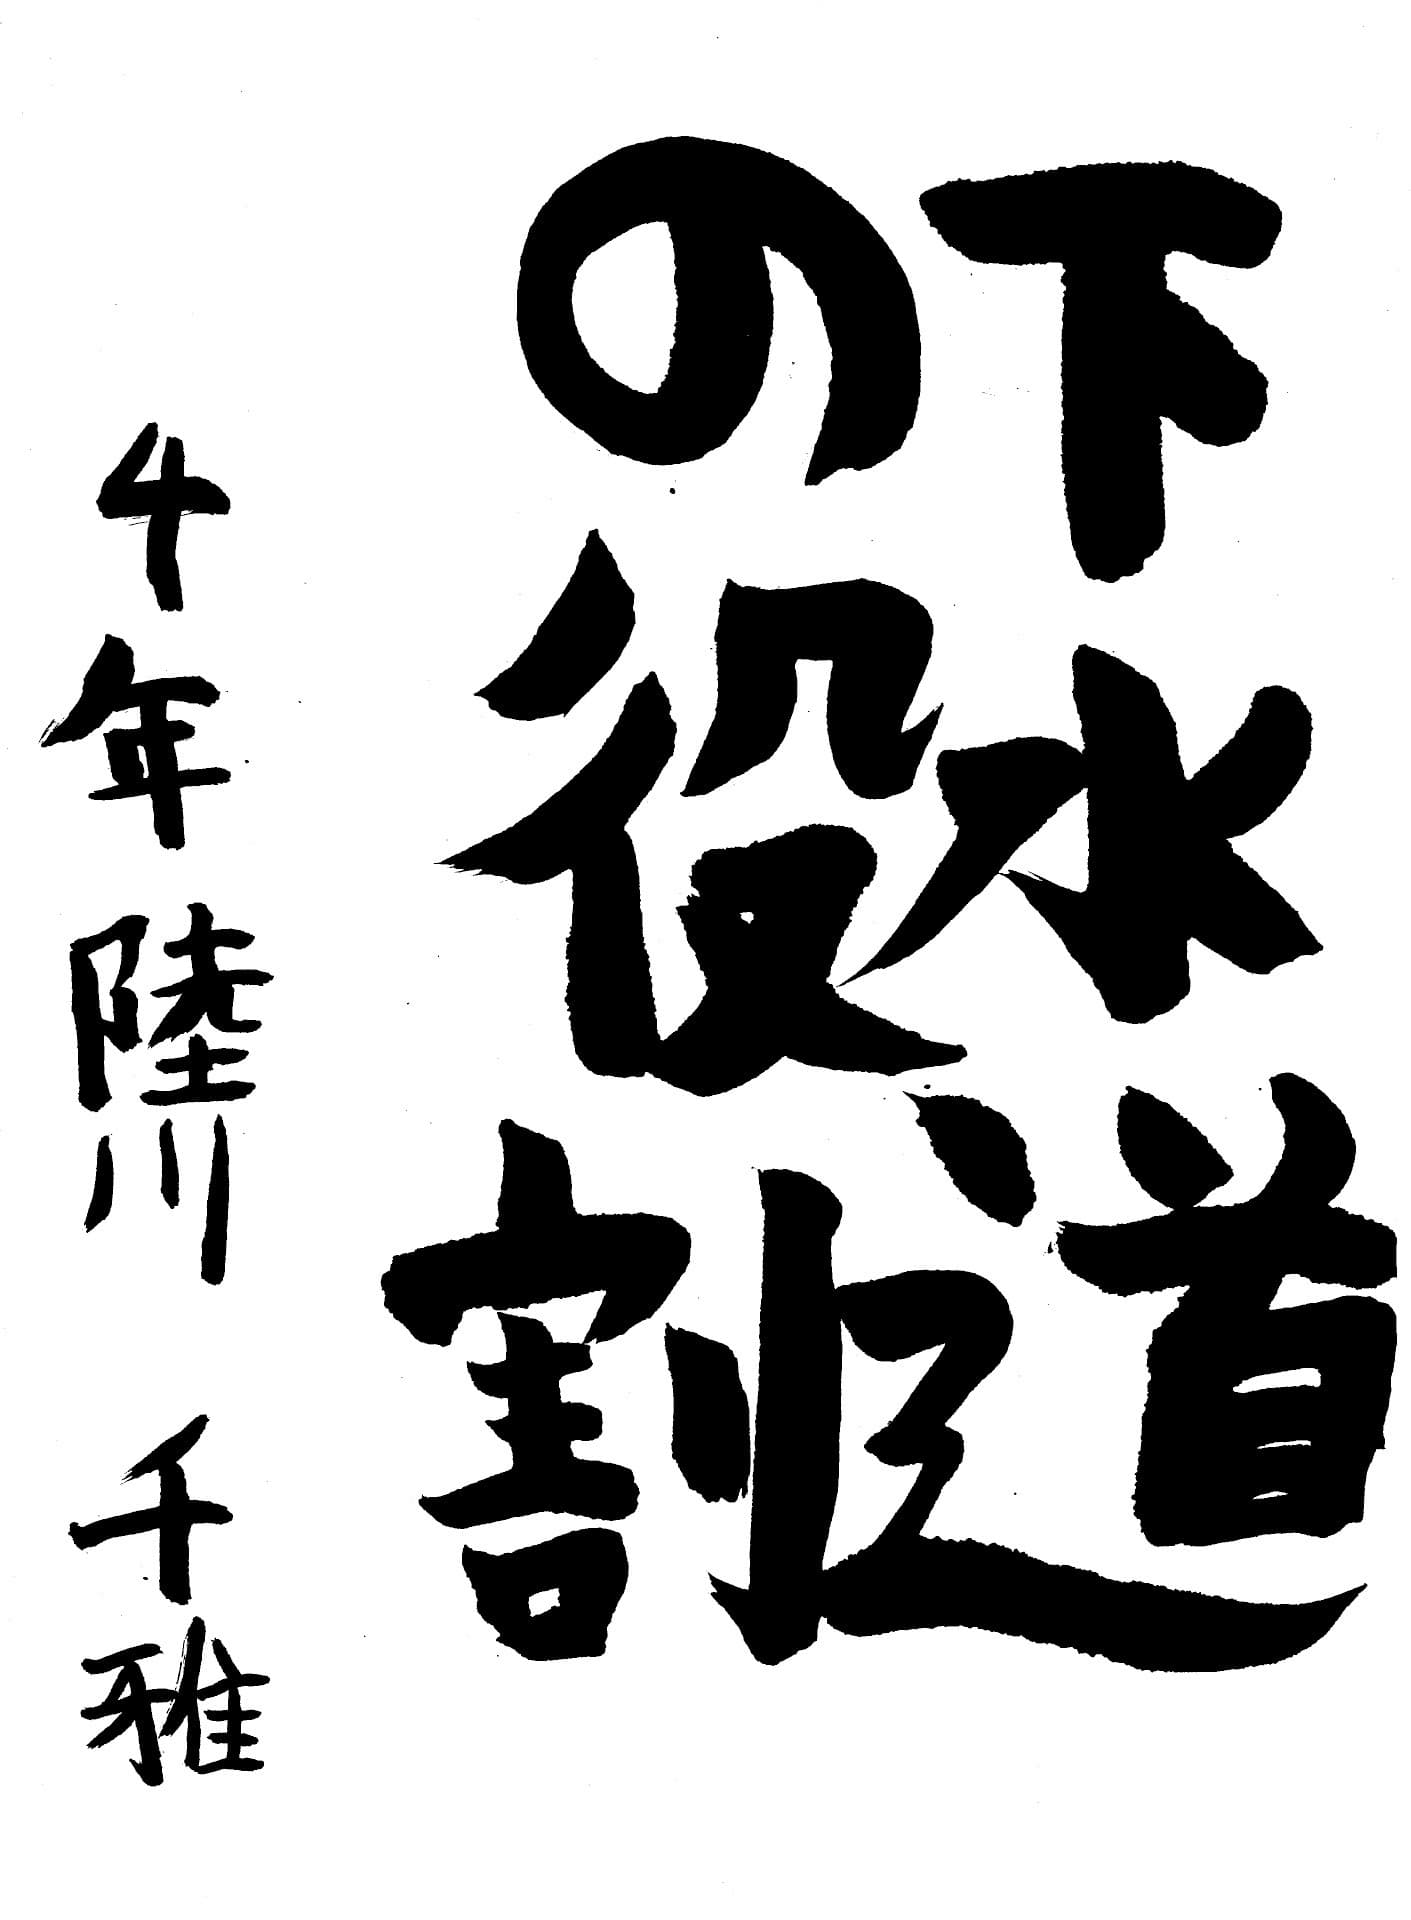 下水道
の役割
4年 陸川 千雅